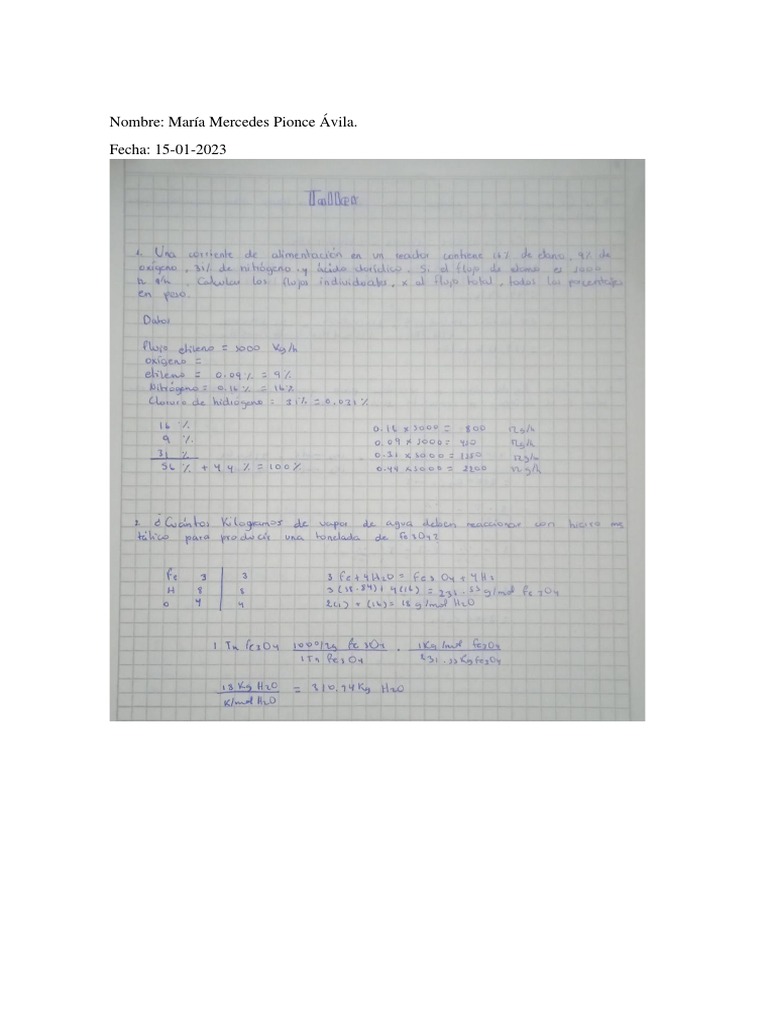 Nombre: María Mercedes Pionce Ávila.
Fecha: 15-01-2023
Taller
1. Una corriente de alimentación en un reactor contiene 16% de etano, 9% de
oxígeno, 31% de nitrógeno y ácido clorídico. Si el flujo de etano es 5000
Calcular los flujos individuales, x el flujo total, todos los porcentajes
en peso.
Datos
Flujo etileno = 5000 Kg/h
oxígeno =
etileno = 0.09% = 9%
Nitrógeno = 0.16% = 16%
Cloruro de hidrógeno = 31% = 0.031%
16 % 0.16 x 5000 = 800
9 % 0.09 x 5000 = 450
31 % 0.31 x 5000 =
56 % + 44 % = 100% 0.44 x 5000 = 2200
2. ¿Cuántos Kilogramos de vapor de agua deben reaccionar con hierro me
tálico para producir una tonelada de Fe3O4?
Fe 3 3 3 Fe + 4 H2O = Fe3 O4 + 4 H2
H 8 8 + 4(16) = 231.55 g/mol Fe3O4
O 4 4 2(1) + (16) = 18 g/mol H2O
1 Tn Fe3O4 Fe3O4 . 1 Kg/mol Fe3O4
1 Tn Fe3O4 231.55 Kg Fe3O4
18 Kg H2O = 310.74 Kg H2O
K/mol H2O